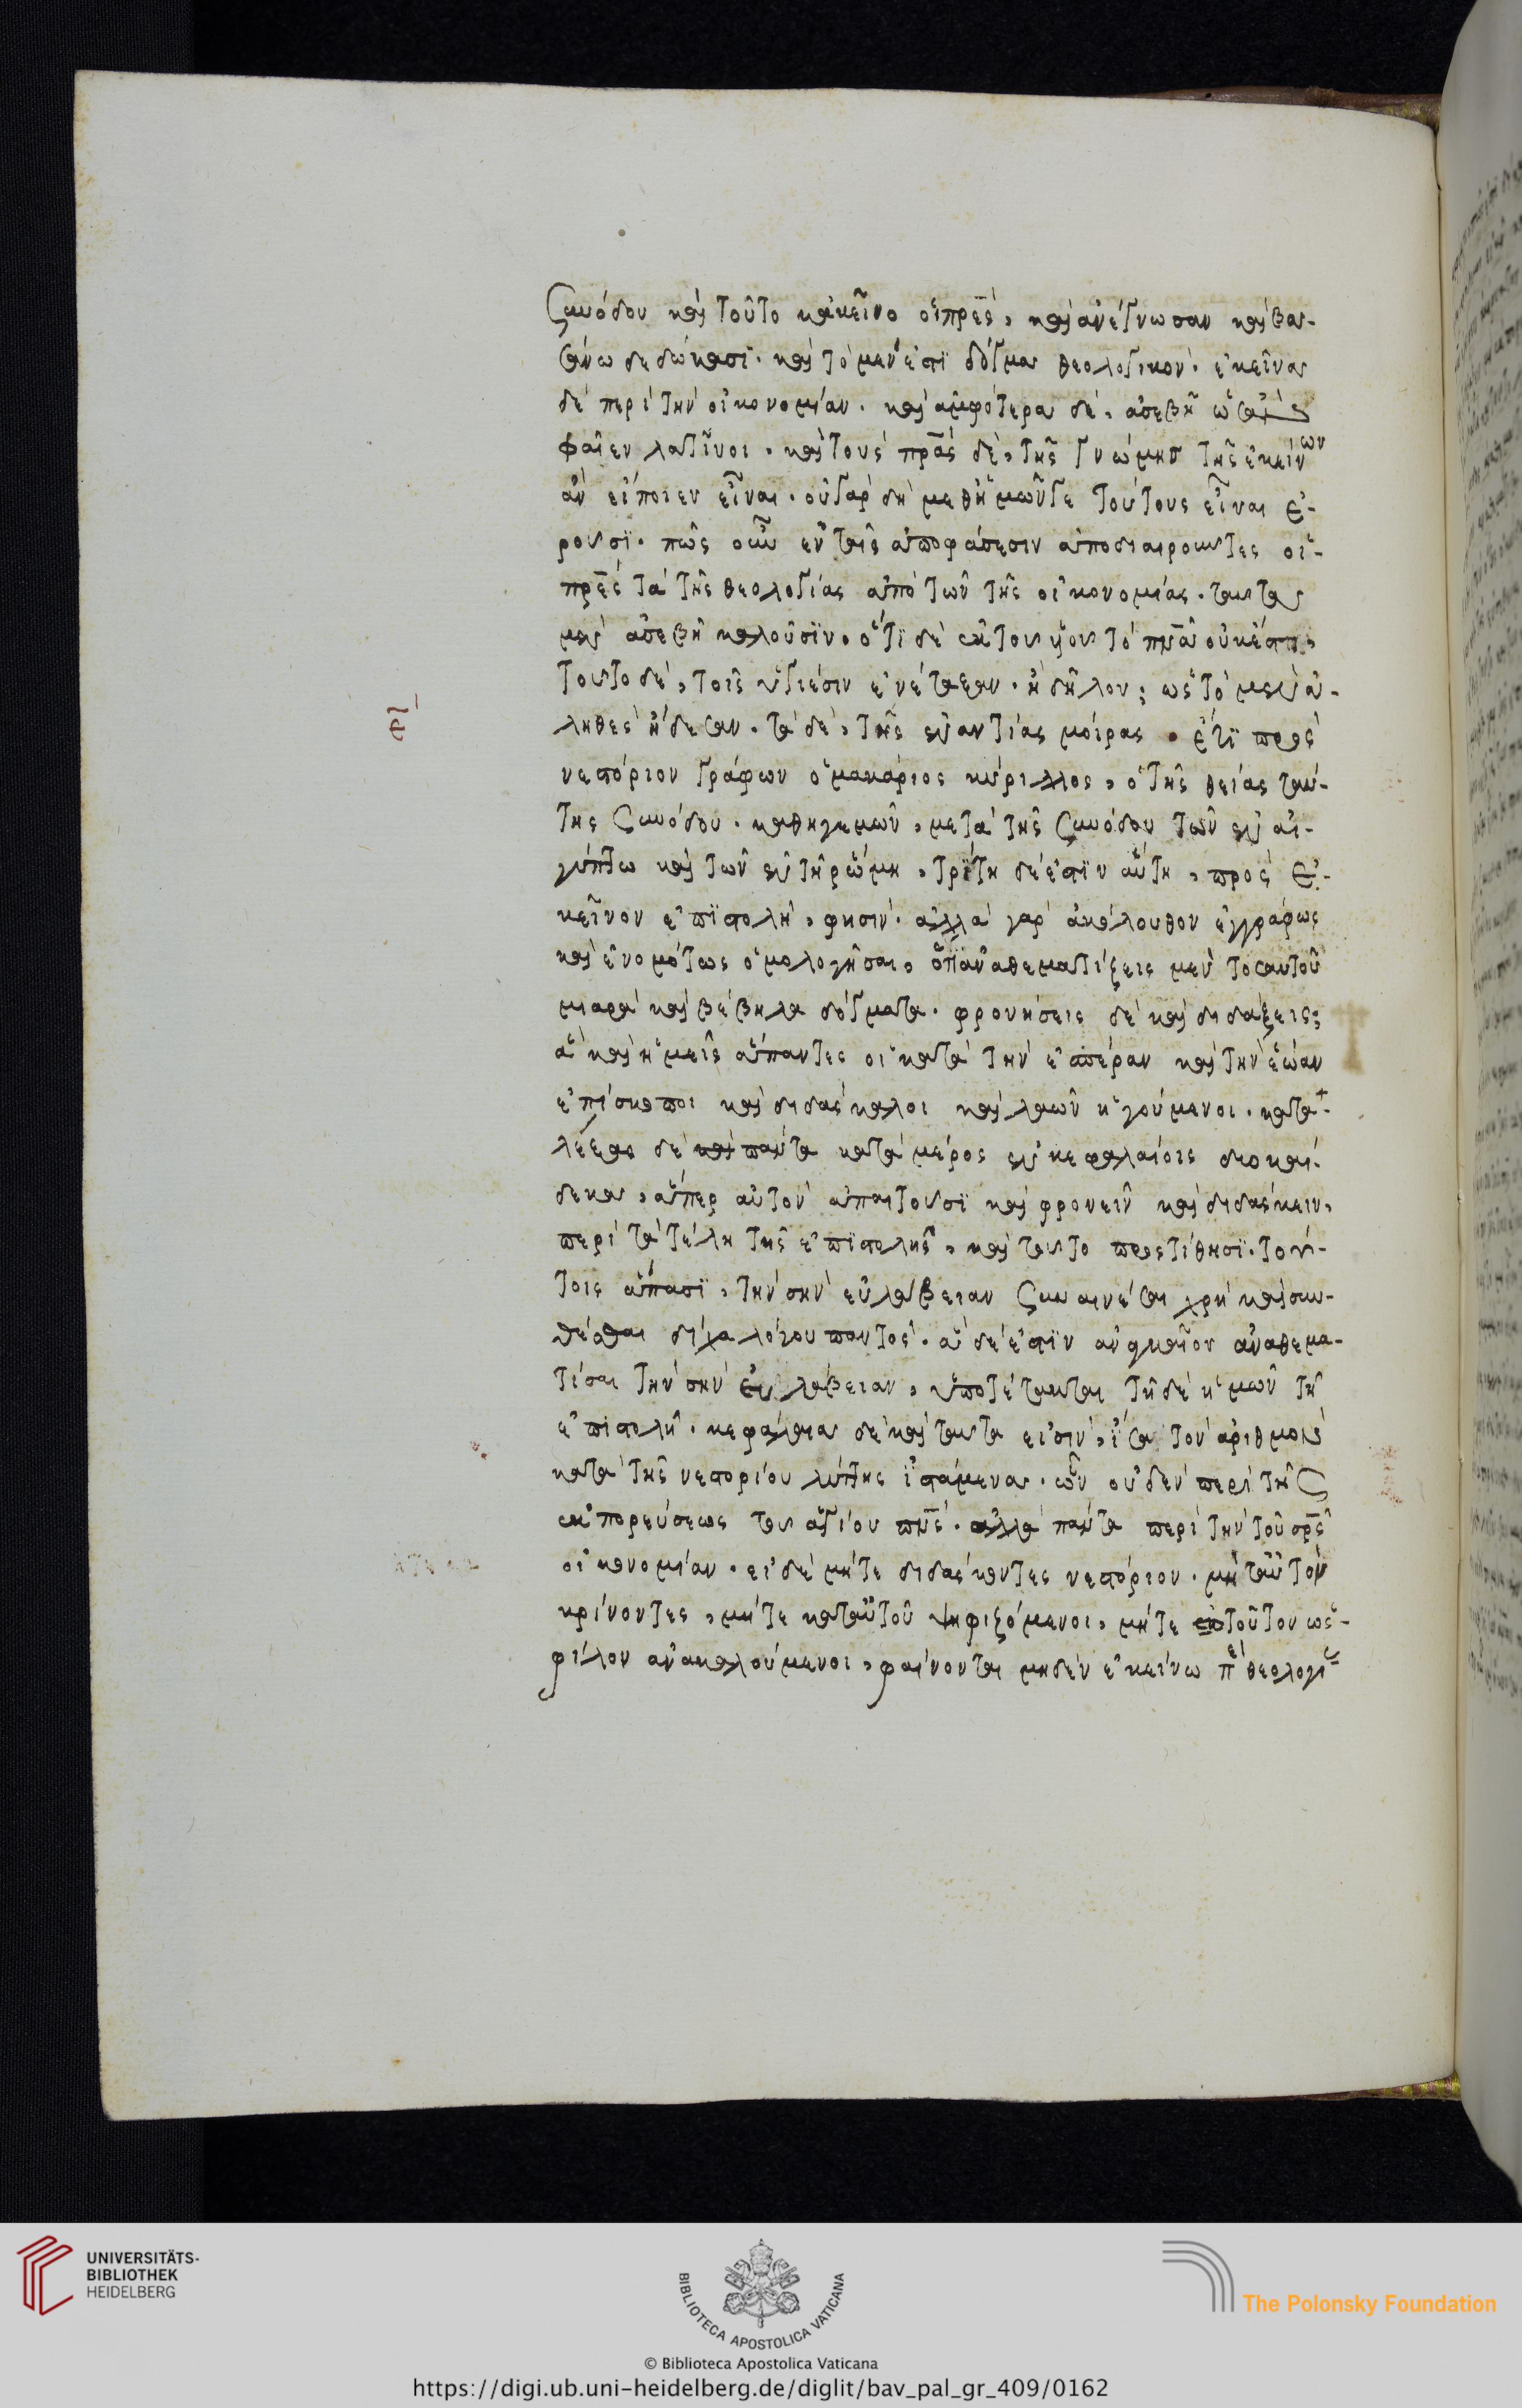 συνόδου καὶ τοῦτο κἀκεῖνο οἱ πρ̅ε̅ς, καὶ ἀνέγνωσαν καὶ βα-
σάνω δεδώκασϊ. καὶ τὸ μὲν ἐστϊ δόγμα θεολογικὸν. ἐκεῖνα
δὲ περὶ τὴν οἰκονομίαν. καὶ ἀμφότερα δὲ, ἀσεβῆ
φαῖεν λατῖνοι. καὶ τοὺς πρ̅α̅ς δὲ, τῆς γνώμης τῆς ἐκείνων
ἂν εἴποιεν εἶναι. οὐ γὰρ δὴ μεθ' ἡμῶν γε τούτους εἶναι ἐ-
ροῦσϊ. πῶς οὖν ἐν ταῖς ἀποφάσεσιν ἀποδιαιροῦντες οἱ
πρ̅ε̅ς τὰ τῆς θεολογίας ἀπὸ τῶν τῆς οἰκονομίας. ταῦτα
μὲν ἀσεβῆ καλοῦσϊν. ὅτϊ δὲ ἐκ τοῦ υἱοῦ τὸ πν̅α̅ οὐκ ἔστι,
τοῦτο δὲ, τοῖς ὑγιέσιν ἐνέταξαν. ἢ δῆλον; ὡς τὸ μὲν ἀ-
ληθὲς ᾔδεσαν. τὰ δὲ, τῆς ἐναντίας μοίρας. ἔτϊ πρὸς
νεστόριον γράφων ὁ μακάριος κύριλλος, ὁ τῆς θείας ταύ-
της συνόδου. καθηγεμὼν, μετὰ τῆς συνόδου τῶν ἐν αἰ-
γύπτω καὶ τῶν ἐν τῇ ῥώμη, τρίτη δέ ἐστϊν αὕτη, πρὸς ἐ-
κεῖνον ἐπϊστολὴ, φησὶν. ἀλλὰ γὰρ ἀκόλουθον ἐγγράφως
καὶ ἐνομότως ὁμολογῆσαι, ὅτϊ ἀναθεματίζεις μὲν τὸ σαυτοῦ
μιαρὰ καὶ βέβηλα δόγματα. φρονήσεις δὲ καὶ διδάξεις;
ἃ καὶ ἡμεῖς ἅπαντες οἱ κατὰ τὴν ἑσπέραν καὶ τὴν ἑώαν
ἐπίσκοποι καὶ διδάσκαλοι καὶ λαῶν ἡγούμενοι. κατα-
λέξας δὲ καὶ πάντα κατὰ μέρος ἐν κεφαλαίοις δυοκαί-
δεκα, ἅπερ αὐτὸν ἀπαιτοῦσϊ καὶ φρονεῖν καὶ διδάσκειν,
περὶ τὰ τέλη τῆς ἐπϊστολῆς, καὶ ταῦτο προστίθησϊ. τού-
τοις ἅπασϊ, τὴν σὴν εὐλάβειαν συναινέσαι χρὴ καὶ συν-
θέσθαι δίχα λόγου παντὸς. ἃ δέ ἐστϊν ἀναγκαῖον ἀναθεμα-
τίσαι τὴν σὴν εὐλάβειαν, ὑποτέτακται τῆδε ἡμῶν τῆ
ἐπιστολῆ. κεφάλαια δὲ καὶ ταῦτα εἰσὶν, ἴσα τὸν ἀριθμὸν
κατὰ τῆς νεστορίου λύττης ἱστάμενα. ὧν οὐδὲν περὶ τῆς
ἐκπορεύσεως τοῦ ἁγίου πν̅ς̅. ἀλλὰ πάντα περὶ τὴν τοῦ σρ̅ς̅
οἰκονομίαν. εἰ δὲ μήτε διδάσκοντες νεστόριον. μήτ' αὐτὸν
κρίνοντες, μήτε κατ' αὐτοῦ ψηφιζόμενοι, μήτε τοῦτον ὡς
φίλον ἀνακαλούμενοι, φαίνονται μηδὲν ἐκείνω π̅ε̅ θεολογί
UNIVERSITÄTS-
BIBLIOTHEK
HEIDELBERG
BIBLIOTECA APOSTOLICA VATICANA
The Polonsky Foundation
© Biblioteca Apostolica Vaticana
https://digi.ub.uni-heidelberg.de/diglit/bav_pal_gr_409/0162